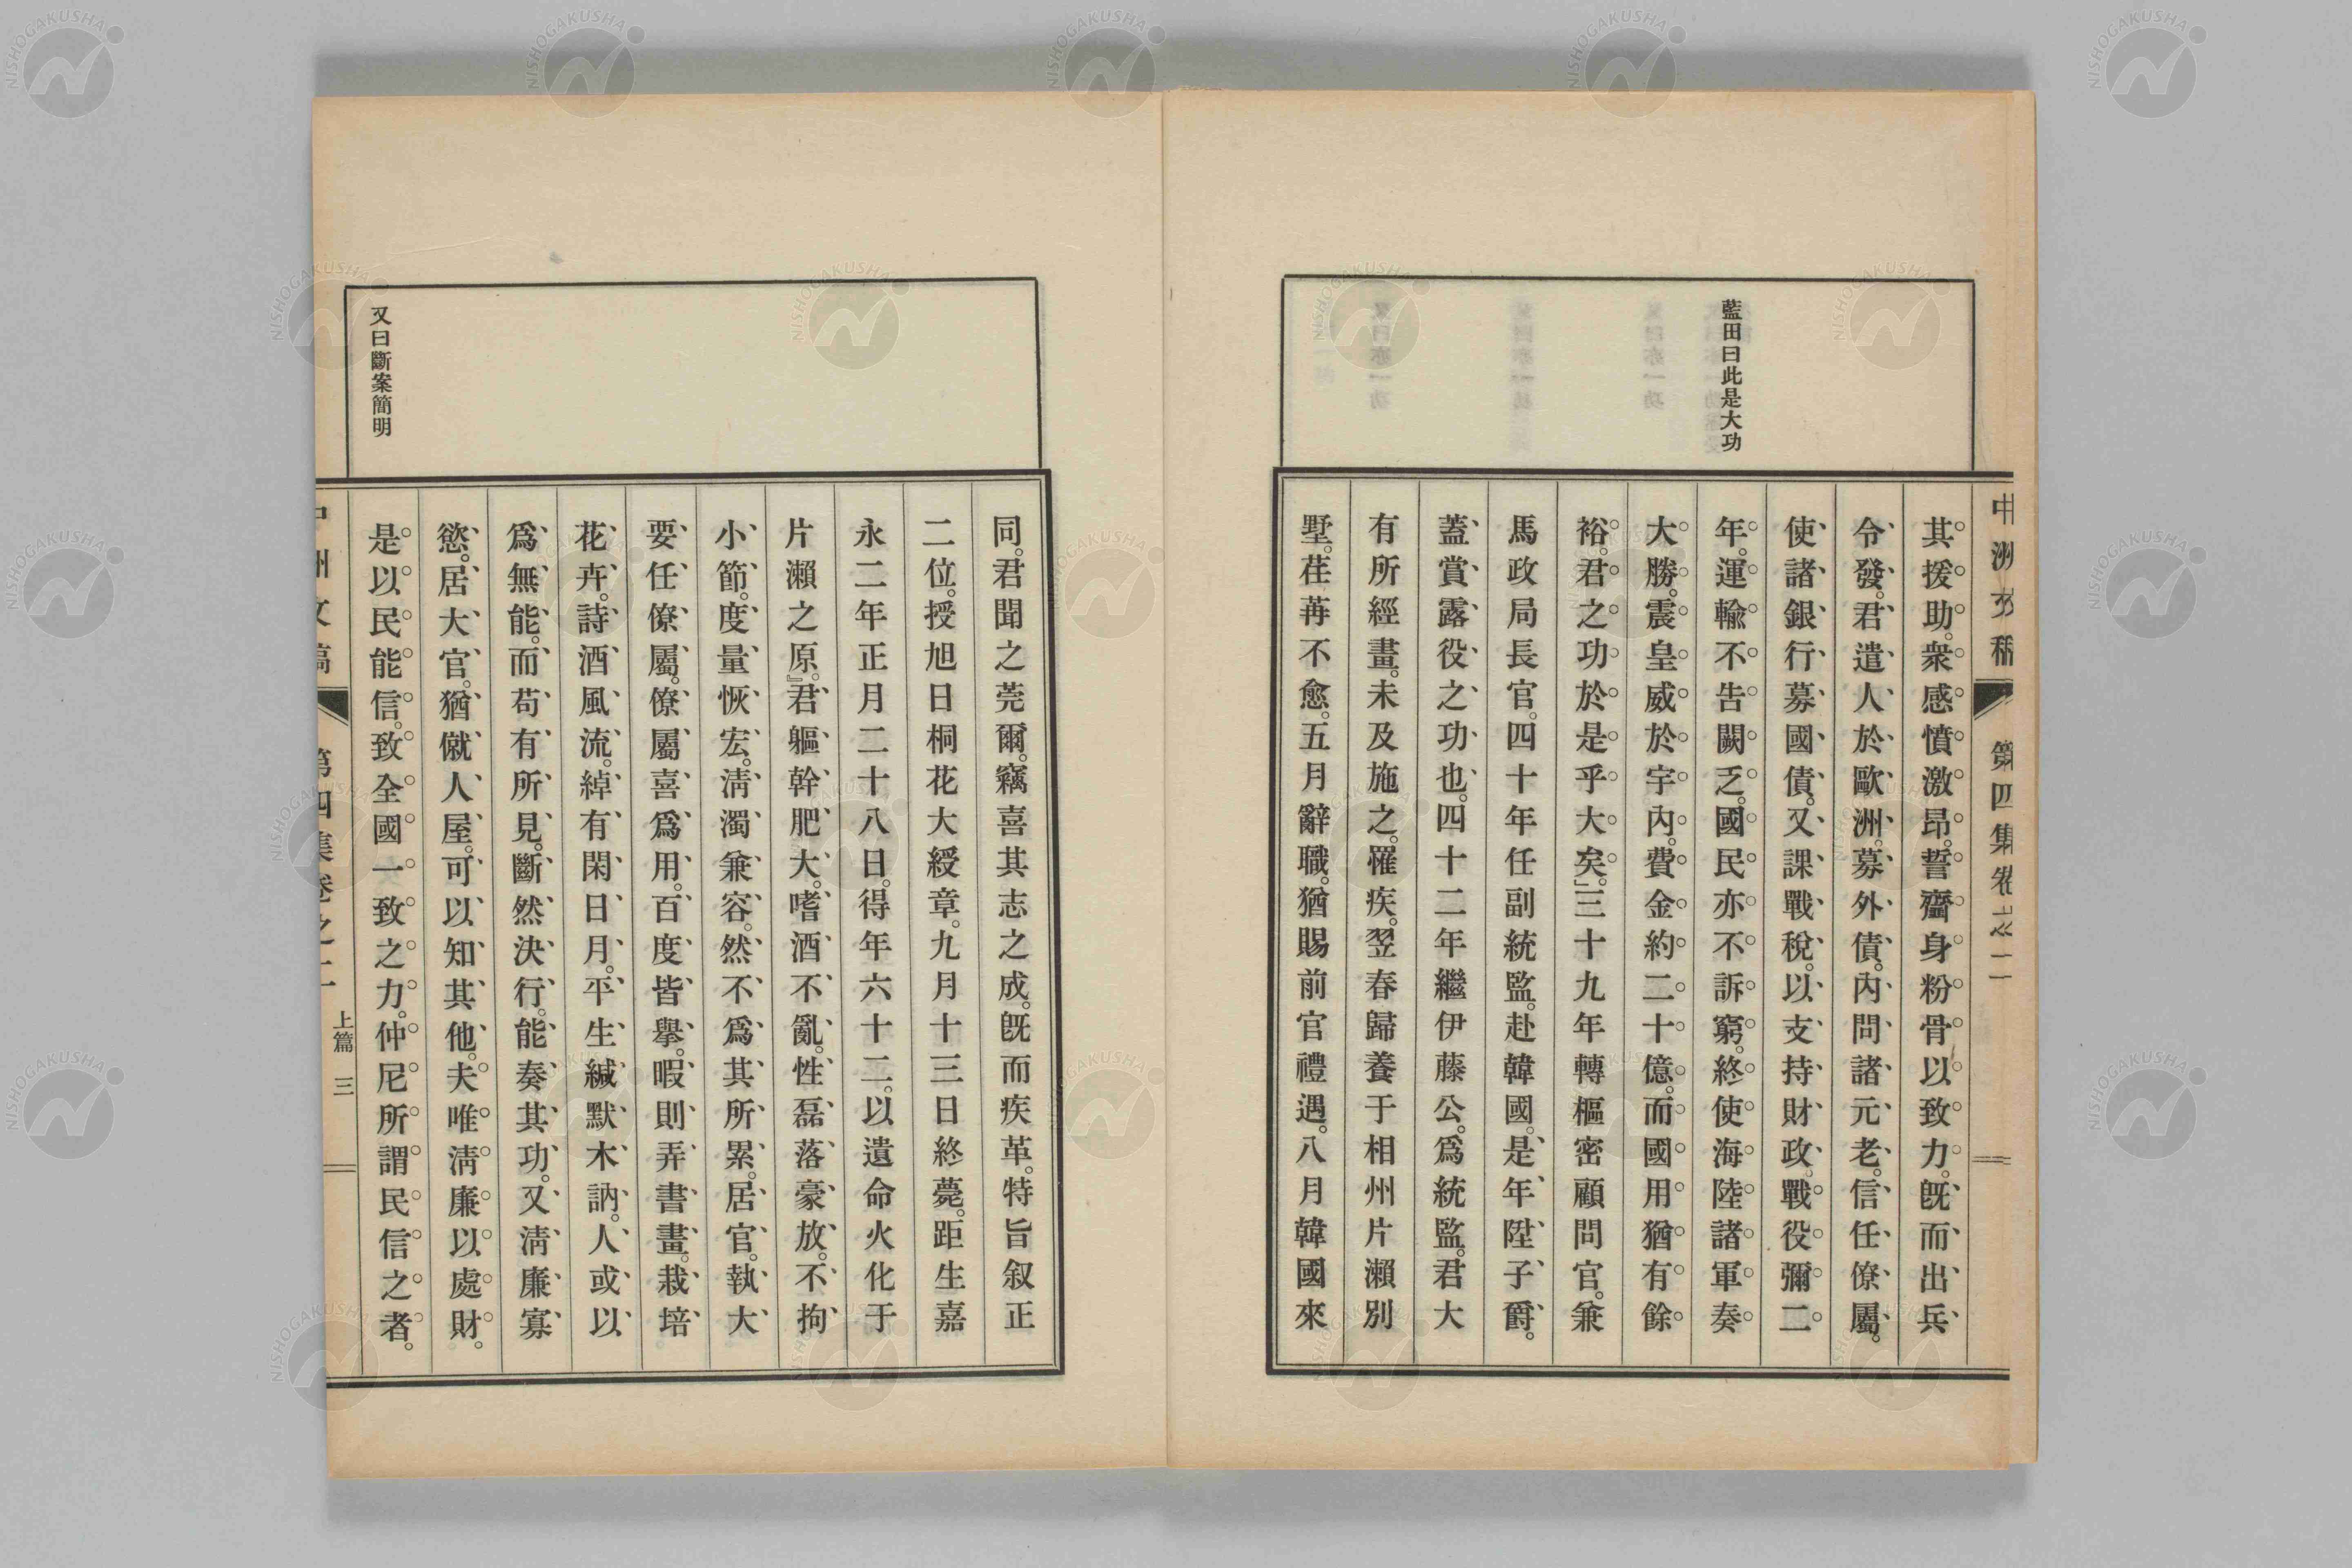 中洲文稿 第四集卷之二
藍田曰此是大功
其援助。衆感憤激昂。誓齎身粉骨以致力。旣而出兵
令發。君遣人於歐洲。募外債。內問諸元老。信任僚屬。
使諸銀行募國債。又課戰稅。以支持財政。戰役彌二
年。運輸不告闕乏。國民亦不訴窮。終使海陸諸軍奏
大勝。震皇威於宇內。費金約二十億。而國用猶有餘
裕。君之功於是乎大矣。』三十九年轉樞密顧問官。兼
馬政局長官。四十年任副統監。赴韓國。是年陞子爵。
蓋賞露役之功也。四十二年繼伊藤公。爲統監。君大
有所經畫。未及施之。罹疾。翌春歸養于相州片瀨別
墅。荏苒不愈。五月辭職。猶賜前官禮遇。八月韓國來
同。君聞之莞爾。竊喜其志之成。旣而疾革。特旨叙正
二位。授旭日桐花大綬章。九月十三日終薨。距生嘉
永二年正月二十八日。得年六十二。以遺命火化于
片瀨之原。』君軀幹肥大。嗜酒不亂。性磊落豪放。不拘
小節。度量恢宏。淸濁兼容。然不爲其所累。居官。執大
要任僚屬。僚屬喜爲用。百度皆擧。暇則弄書畫。栽培
花卉。詩酒風流。綽有閑日月。平生緘默木訥。人或以
爲無能。而苟有所見。斷然決行。能奏其功。又淸廉寡
慾。居大官。猶僦人屋。可以知其他。夫唯淸廉以處財。
是以民能信。致全國一致之力。仲尼所謂民信之者。
又曰斷案簡明
中洲文稿 第四集卷之二 上篇 三
NISHOGAKUSHA